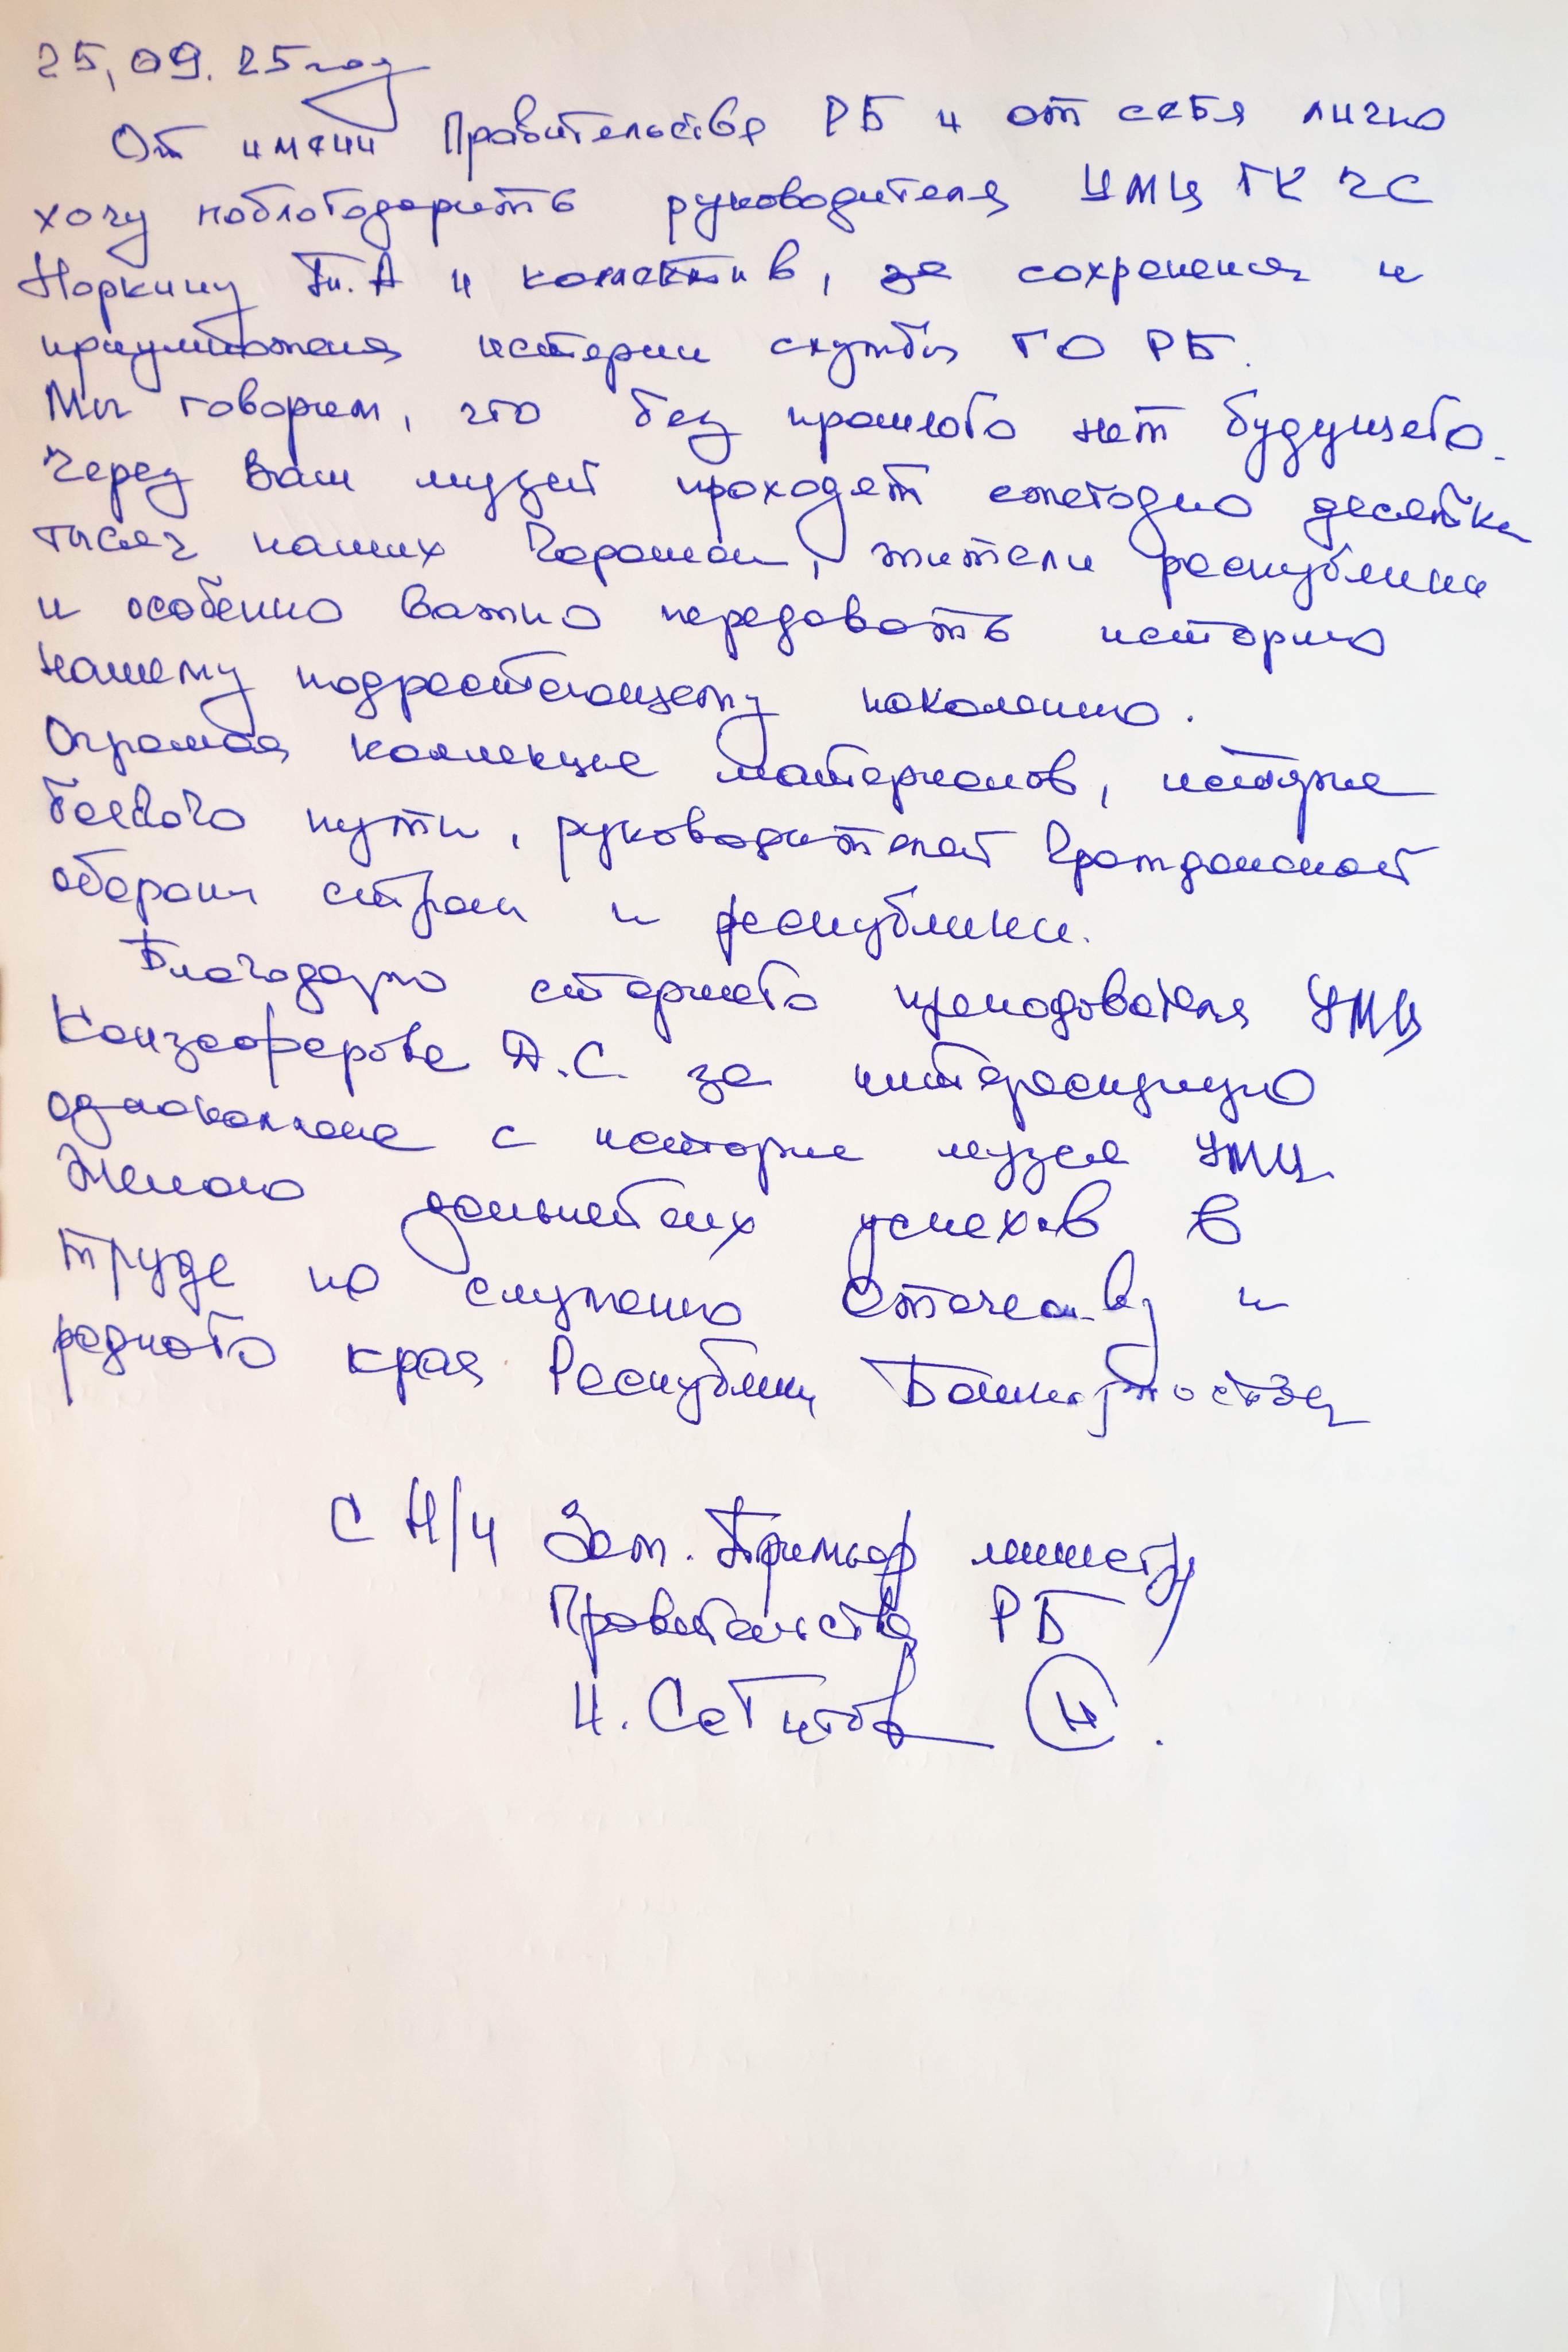 25,09.25 год
От имени Правительства РБ и от себя лично
хочу поблагодарить руководителя УМЦ ГК ЧС
Норкину Т.А и коллектив, за сохранения и
приумножения истории службы ГО РБ.
Мы говорим, что без прошлого нет будущего.
Через Ваш музей проходят ежегодно десятки
тысяч наших Горожан, жители республики
и особенно важно передавать историю
нашему подрастающему поколению.
Огромная коллекция материалов, история
боевого пути, руководителей Гражданской
обороны страны и республики.
Благодарю старшего преподователя УМЦ
Д.С. за интересную
с история музея УМЦ
Желаю дальнейших успехов в
труде на служению Отечеству и
родного края Республики Башкортостан
С Н/ч Зам. Премьер министр
Правительства РБ
И. Сагитов